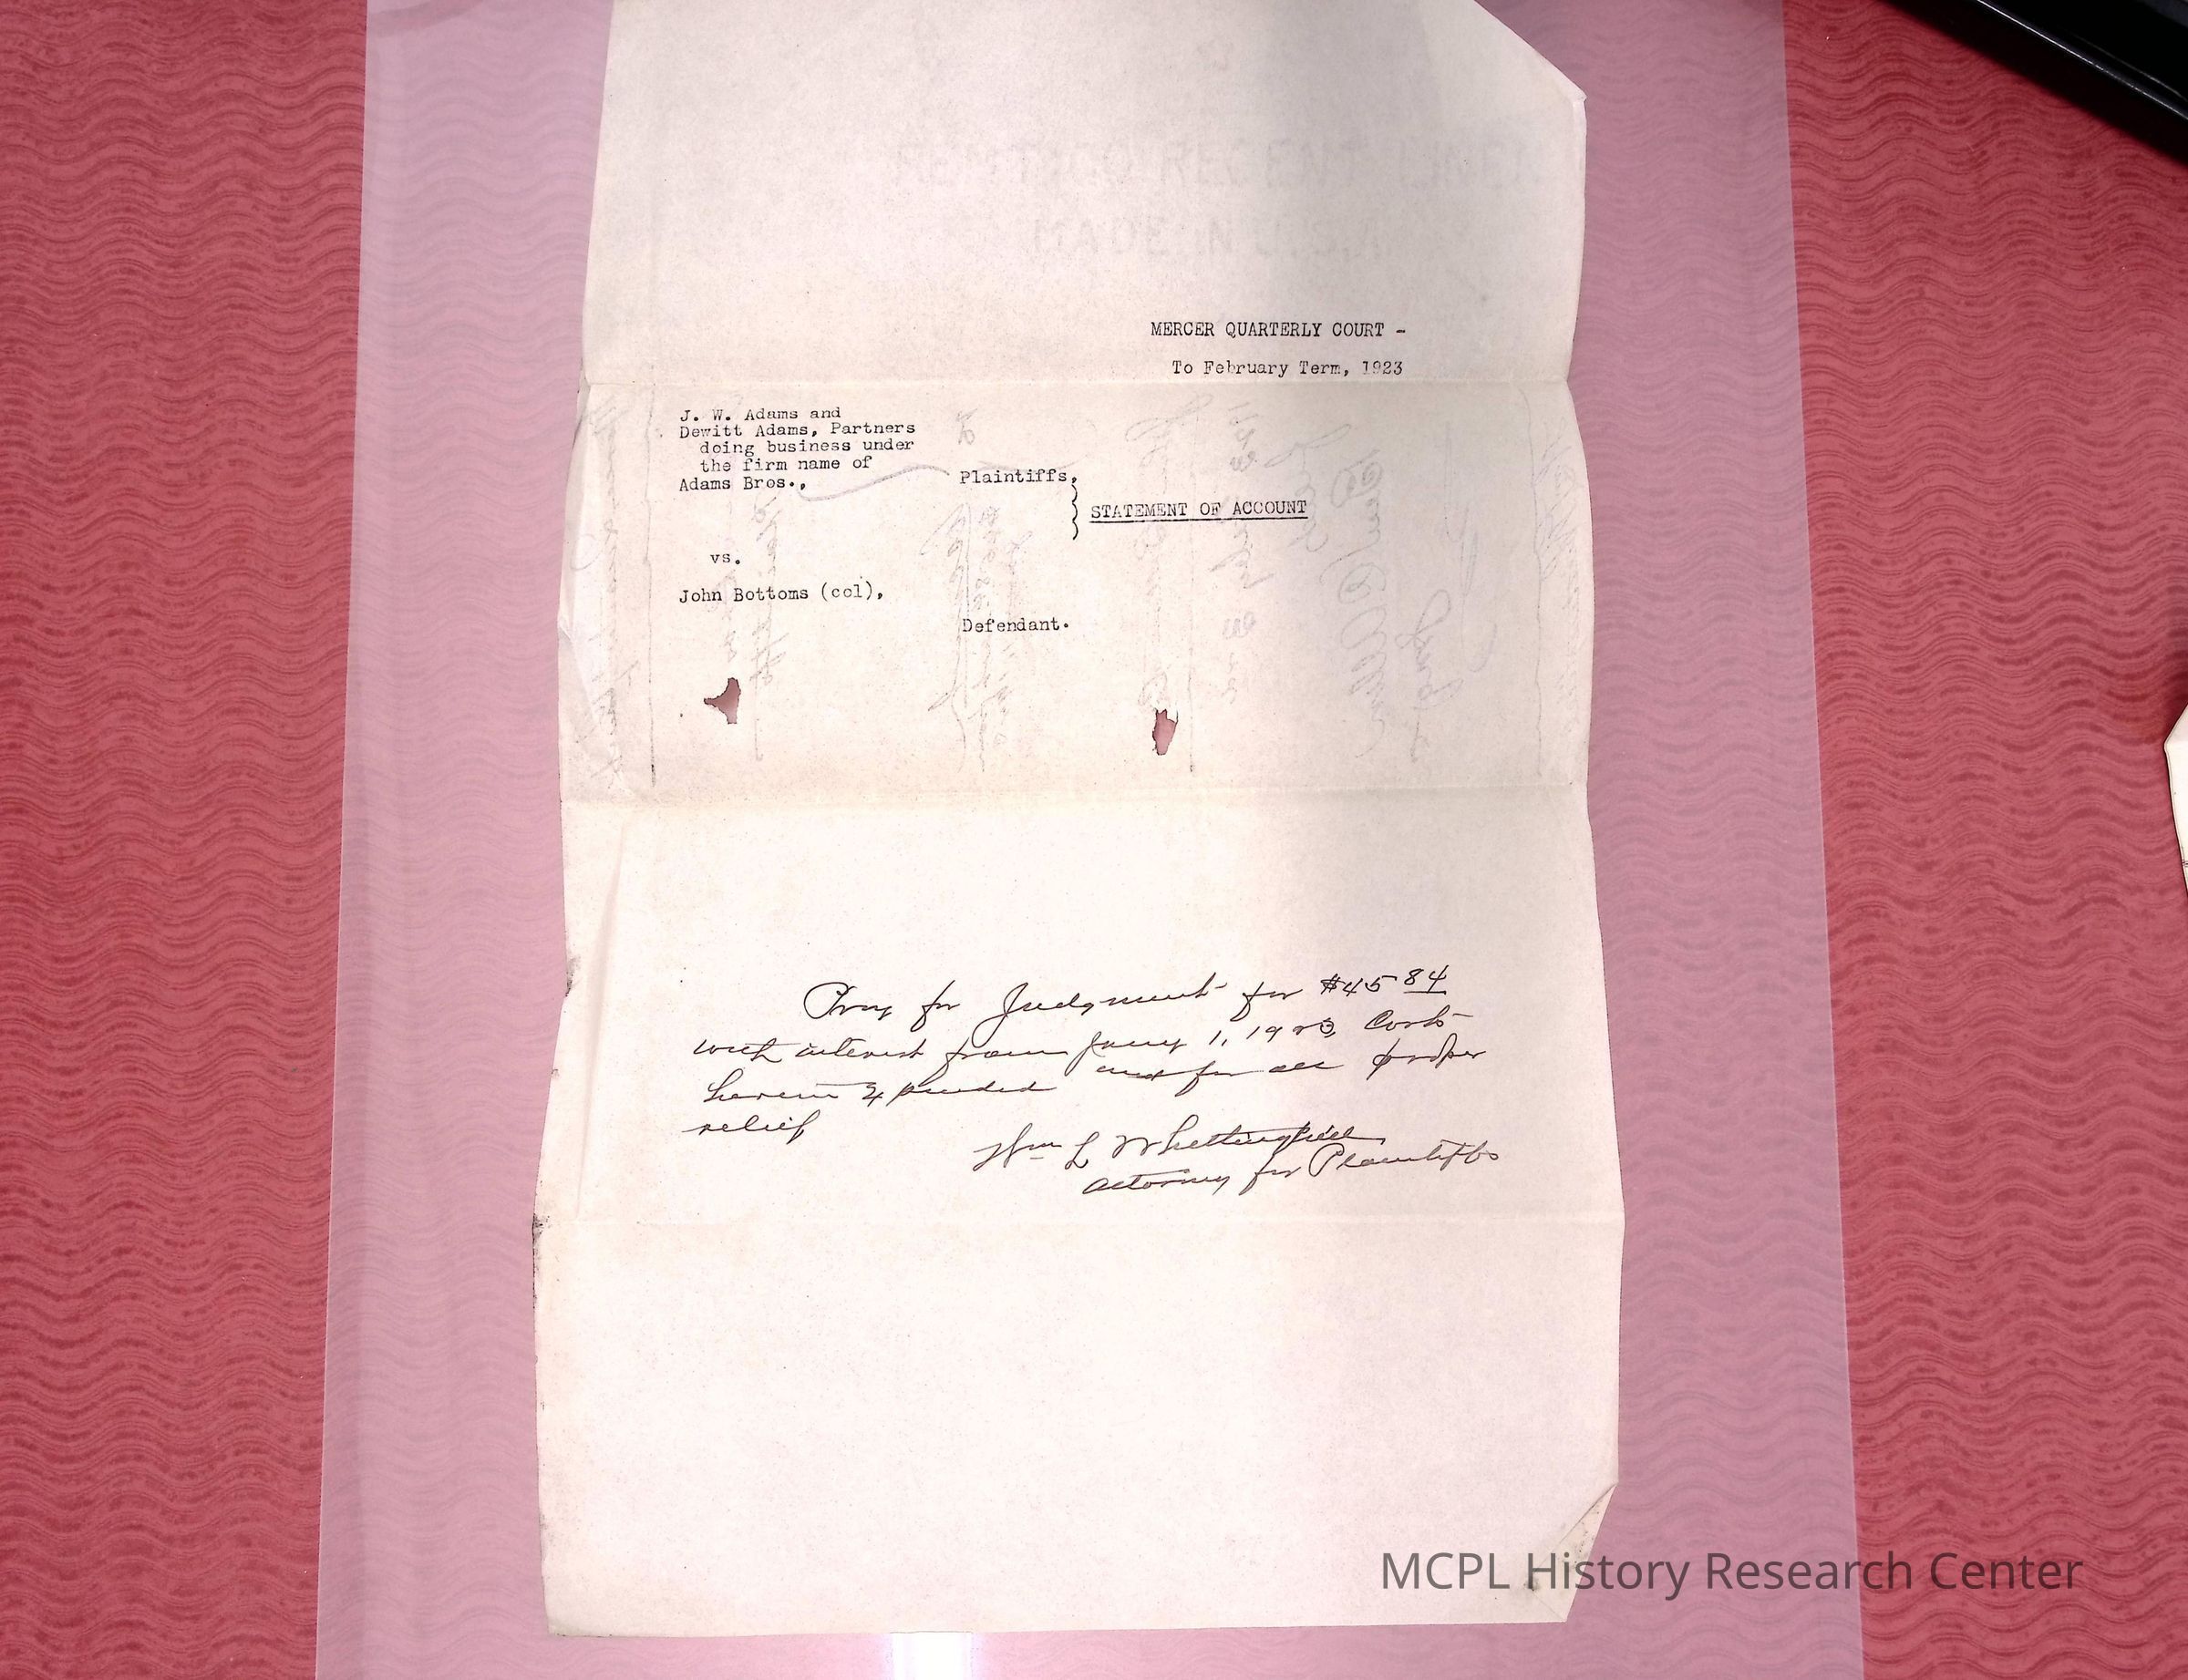 MADE IN U.S.A
MERCER QUARTERLY COURT -
To February Term, 1923
J. W. Adams and
Dewitt Adams, Partners
doing business under
the firm name of
Adams Bros.,
Plaintiffs,
STATEMENT OF ACCOUNT
vs.
John Bottoms (col),
Defendant.
Pray for Judgment for $45 84
with interest from Jany 1, 1923, Costs
herein expended and for all proper
relief
Wm L Whittinghill
Attorney for Plaintiffs
MCPL History Research Center